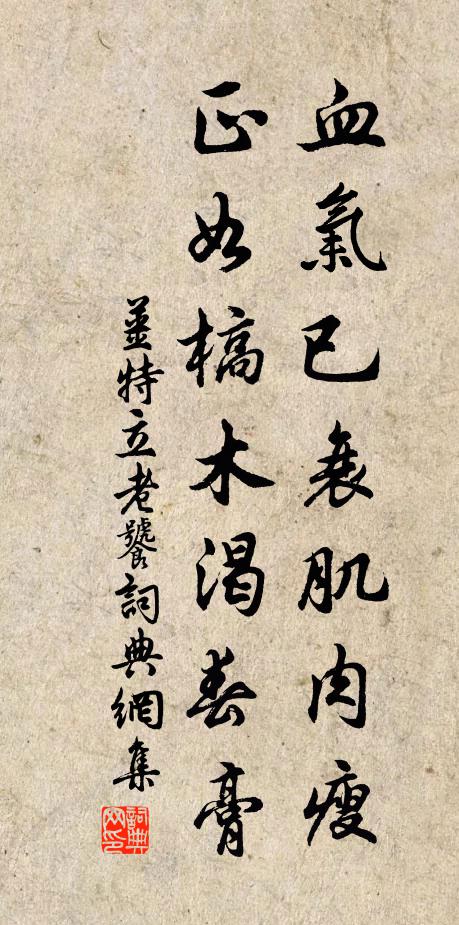 血氣已衰肌肉瘦
正如槁木渴春膏
姜特立老饕詞典網集
詞典網印